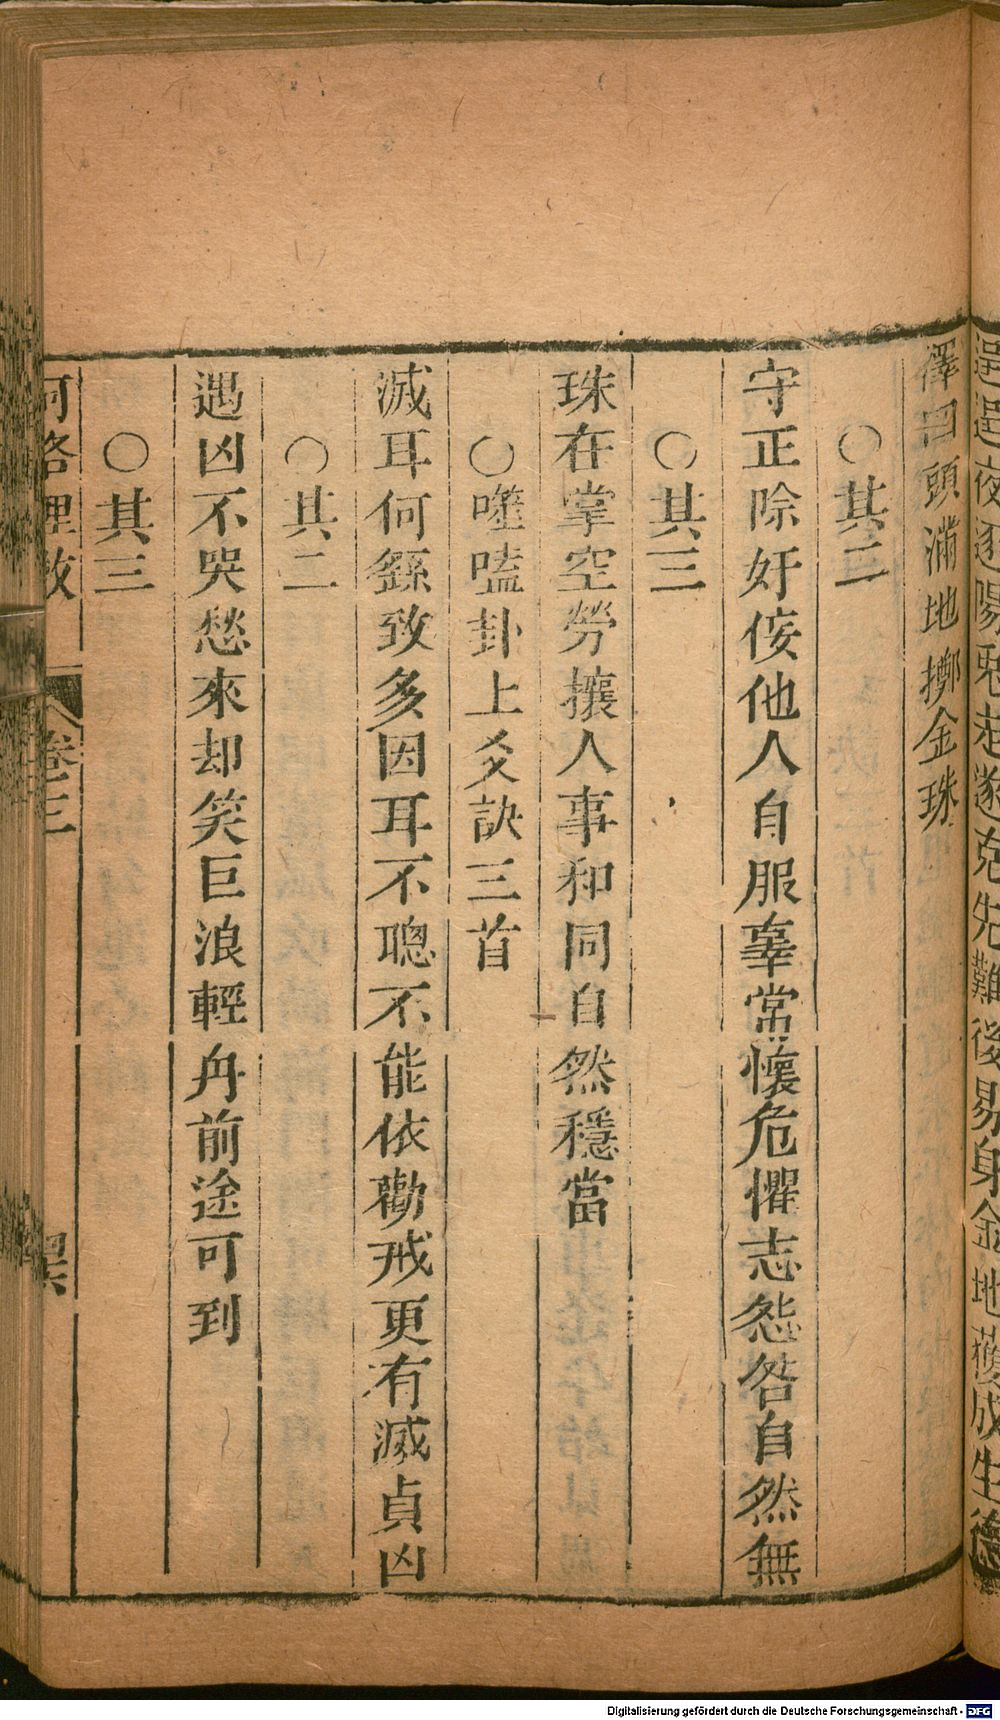 邑邑夜逐陽兎起遂克先難後易身金地獲成生德
釋曰頭滿地擲金珠
○其二
守正除奸侫他人自服辜常懷危懼志怨咎自然無
○其三
珠在掌空勞攘人事和同自然穩當
○噬嗑卦上爻訣三首
滅耳何繇致多因耳不聰不能依勸戒更有滅貞凶
○其二
遇凶不哭愁來却笑巨浪輕舟前途可到
○其三
河洛理數 卷三
Digitalisierung gefördert durch die Deutsche Forschungsgemeinschaft - DFG